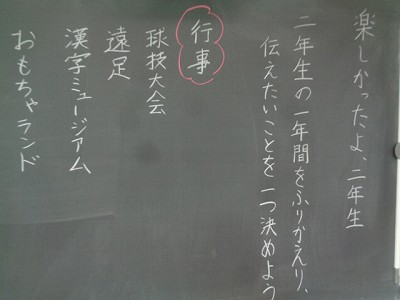 楽しかったよ、二年生
二年生の一年間をふりかえり、
伝えたいことを一つ決めよう
行事
球技大会
遠足
漢字ミュージアム
おもちゃランド